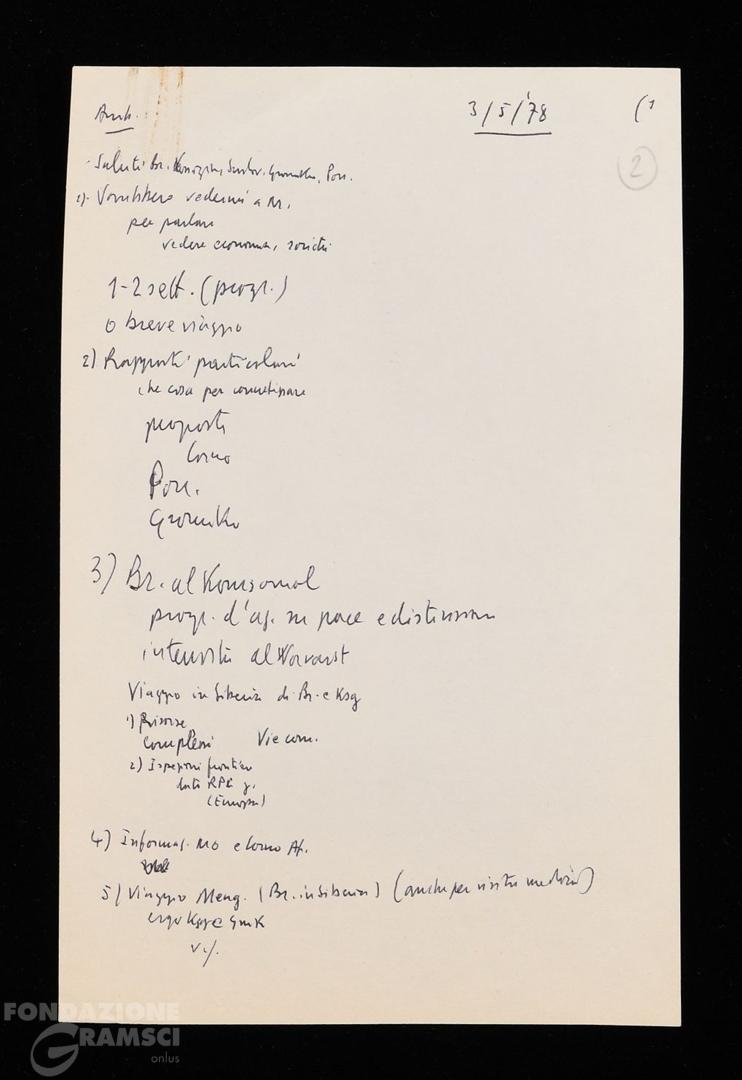 Amb. 3/5/'78 (1
2
- Saluti Br. Kossighin, Suslov, Gromiko, Pon.
1)- Vorrebbero vedermi a M.
per parlare
vedere economia, società
1-2 sett. (progr.)
o breve viaggio
2) Rapporti particolari
che cosa per concretizzare
proposte
Corno
Pon.
Gromiko
3) Br. al Komsomol
progr. d'az. su pace e distensione
intervista al Vorwärst
Viaggio in Siberia di Br. e
1) Risorse
complessi Vie com.
2) Ispezioni frontiera
(Europa)
4) Informaz. MO e Corno Af.
5) Viaggio Meng. (Br. in Siberia) (anche per visita medica)